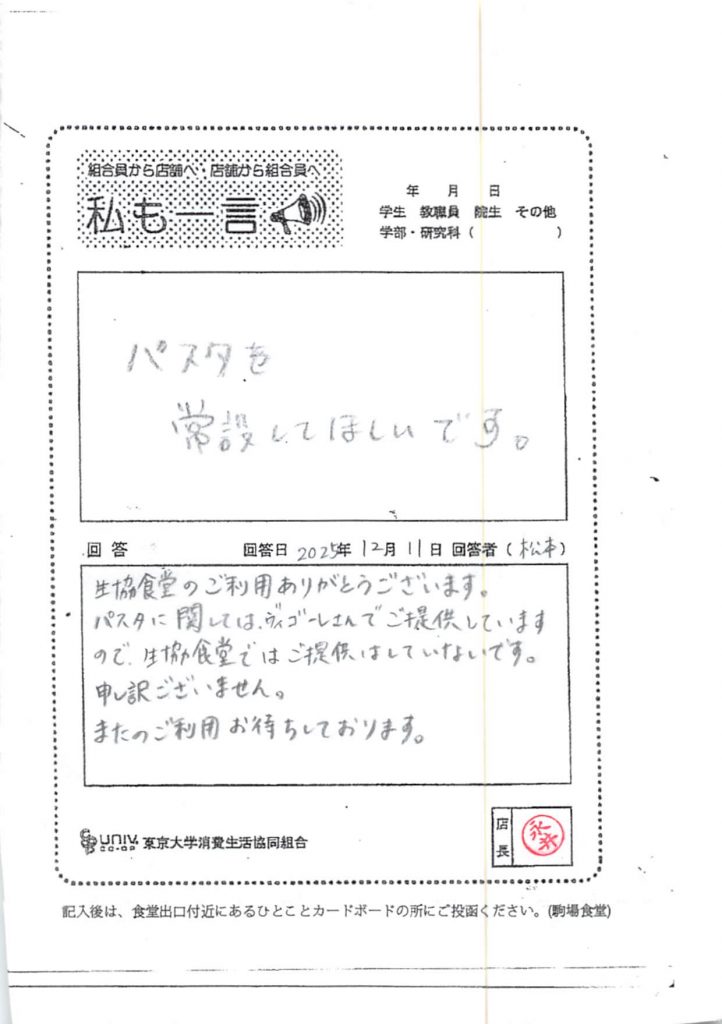 組合員から店舗へ・店舗から組合員へ
私も一言
年 月 日
学生 教職員 院生 その他
学部・研究科 ( )
パスタを
常設してほしいです。
回答 回答日 2025年 12月 11日 回答者 (松本)
生協食堂のご利用ありがとうございます。
パスタに関しては、ヴィゴーレさんでご提供しています
ので、生協食堂ではご提供はしていないです。
申し訳ございません。
またのご利用お待ちしております。
UNIV. CO-OP 東京大学消費生活協同組合
店長
記入後は、食堂出口付近にあるひとことカードボードの所にご投函ください。(駒場食堂)